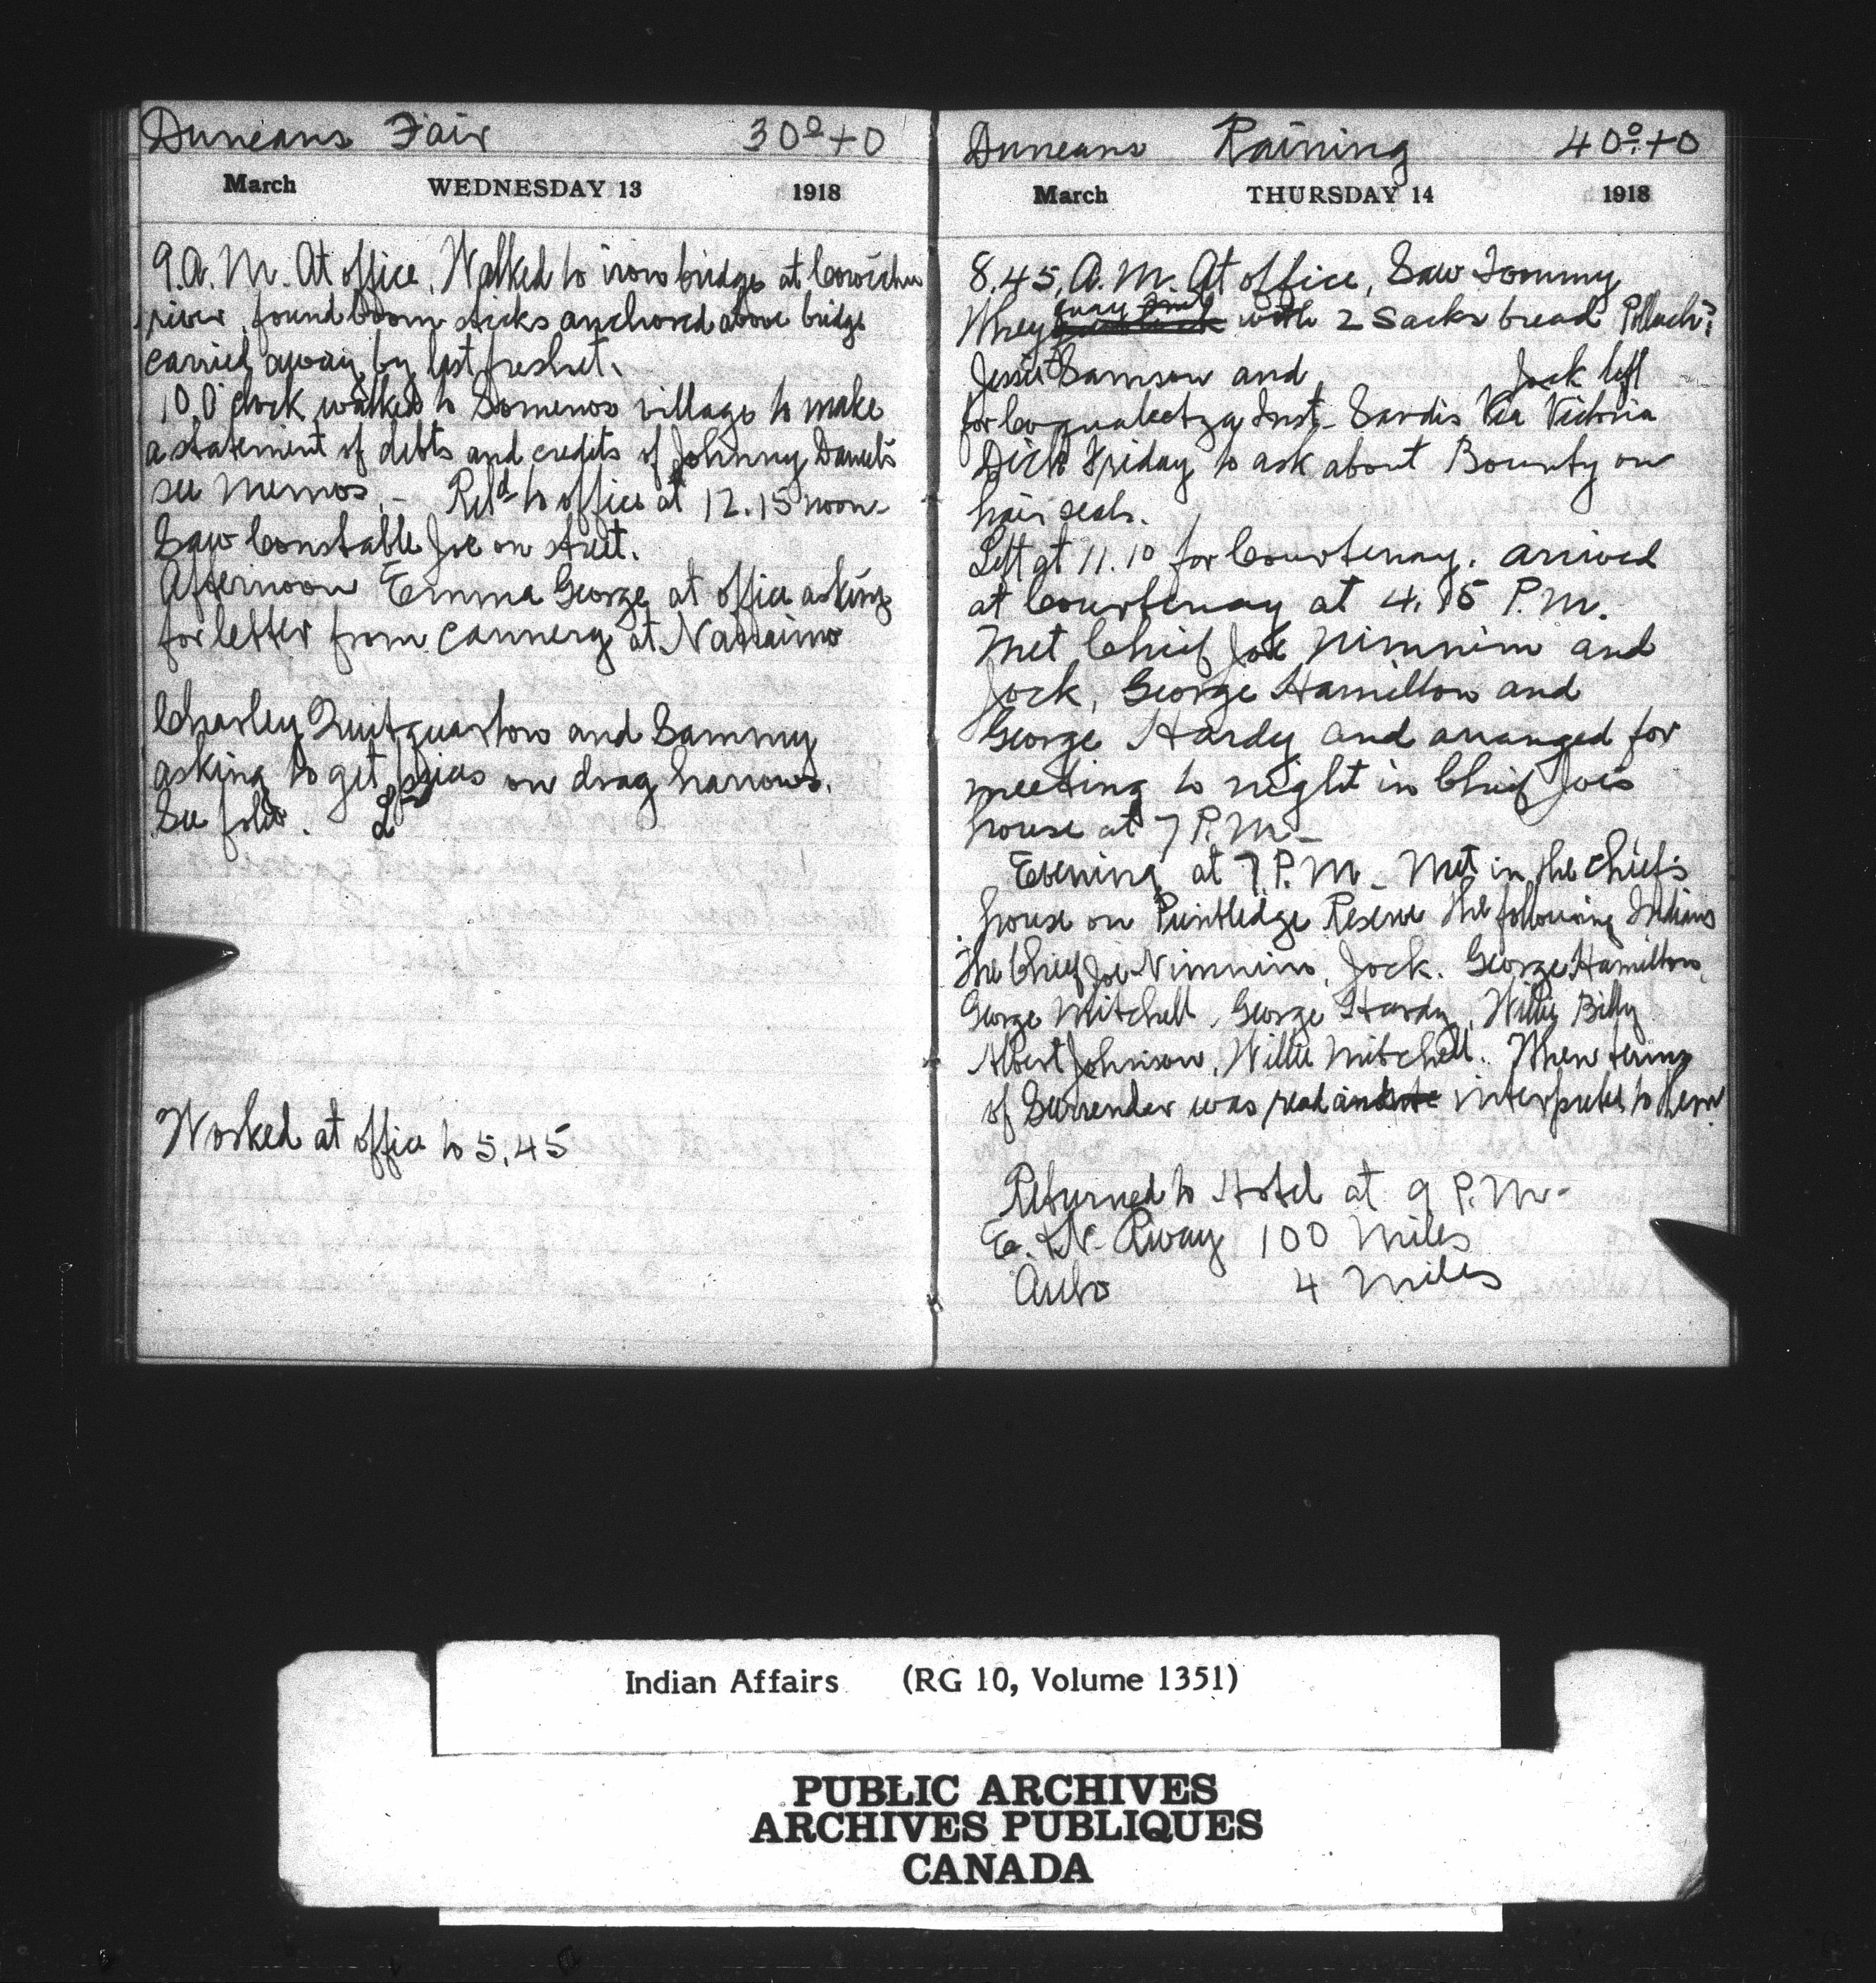 Duncans Fair 30º+0
March WEDNESDAY 13 1918
9.A.M. At office. Walked to iron bridge at Cowichan
river, found boom sticks anchored above bridge
carried away by last freshet.
10,O'clock walked to Somenos village to make
a statement of debts and credits of Johnny Daniel's
see memos. – Retd to office at 12.15 noon
Saw Constable Joe on street.
Afternoon Emma George at office asking
for letter from cannery at Nanaimo
Charley Quitquartow and Sammy
asking to get prices on drag harrows.
See folio.
Worked at office to 5.45
Duncans Raining 40º.+0
March THURSDAY 14 1918
8.45, A.M. At office, Saw Tommy
with 2 Sacks bread
Samson and Jock left
for Coqualeetza Inst. Sardis Via Victoria
Dick Friday to ask about Bounty on
hair seals.
Left at 11.10 for Courtenay. arrived
at Courtenay at 4.15 P.M.
Met Chief Joe Nimnim and
Jock, George Hamilton and
George Hardy and arranged for
meeting to night in Chief Joes
house at 7 P.M –
Evening at 7 P.M – Met in the chief's
house on Puntledge Reserve the following Indians
The Chief Joe Nimnim, Jock. George Hamilton,
George Mitchell, George Hardy, Willie Billy
Albert Johnson, Willie Mitchell. When terms
of Surrender was read and interpreted to them
Returned to Hotel at 9 P.M –
E. & N. Rway 100 Miles
Auto 4 Miles
Indian Affairs (RG 10, Volume 1351)
PUBLIC ARCHIVES
ARCHIVES PUBLIQUES
CANADA